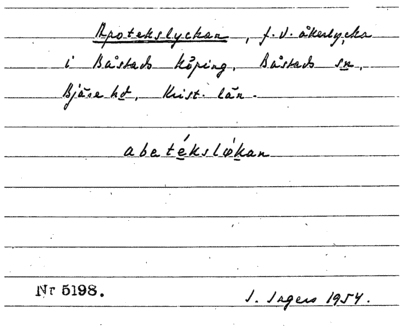 Apotekslyckan, f.d. åkerlycka
i Båstads köping, Båstads sn,
Bjäre hd, Krist. län.
abetékslǿkan
Nr 5198.
I. Ingers 1954.